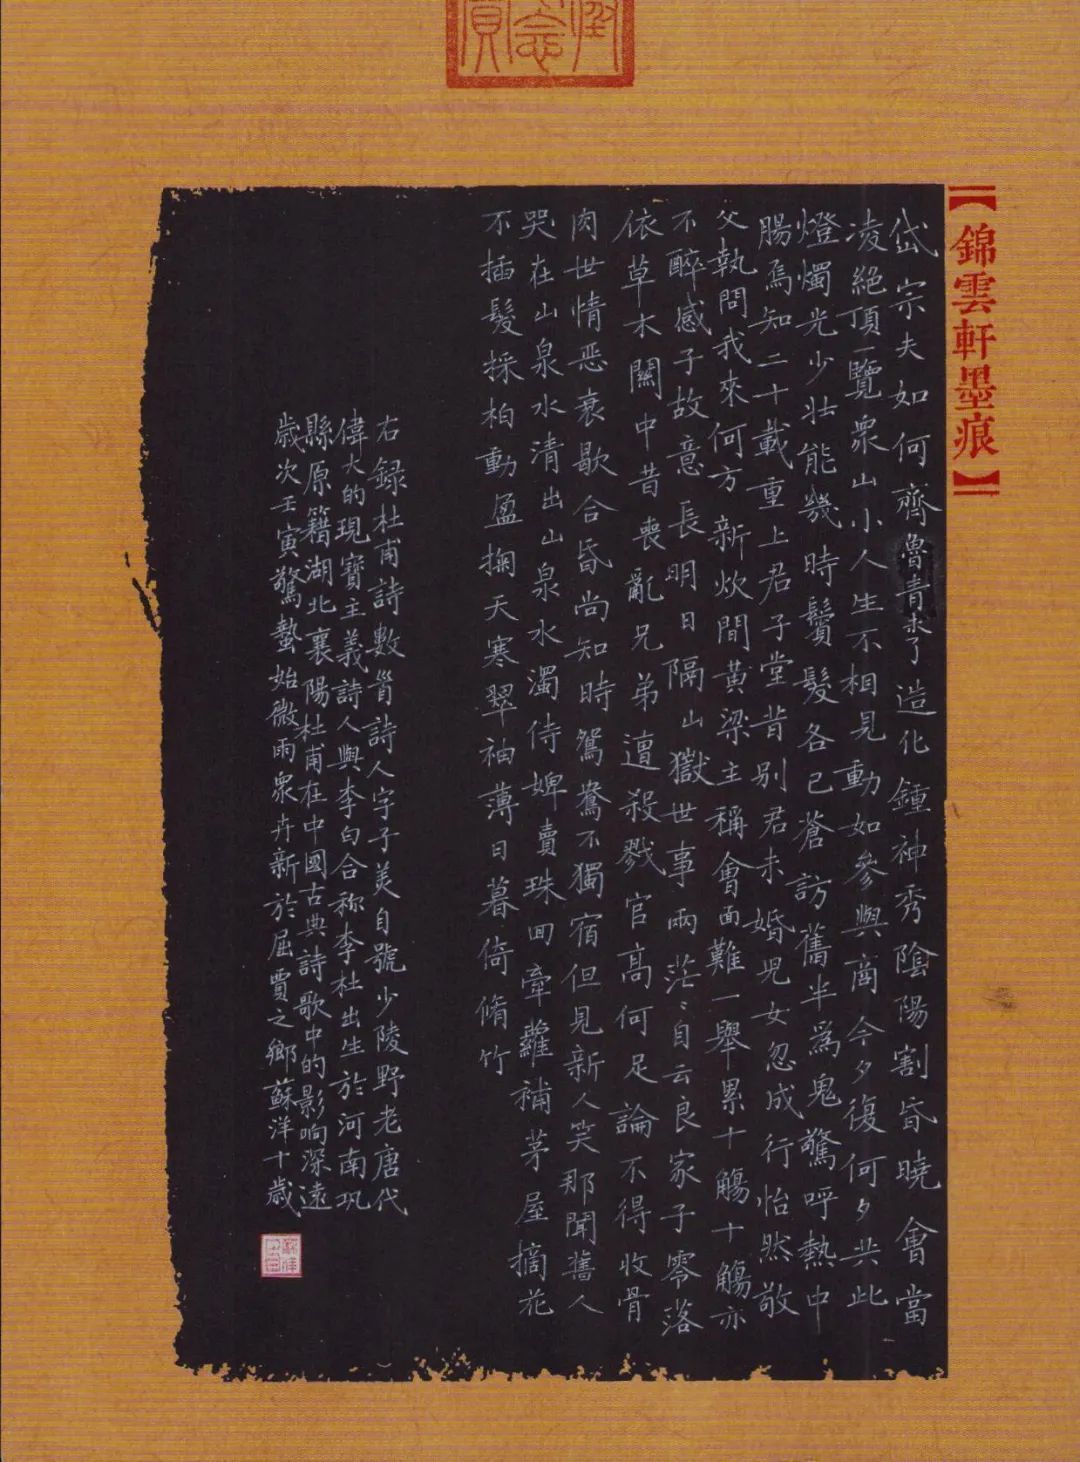 【錦雲軒墨痕】
岱宗夫如何齊魯青未了造化鍾神秀陰陽割昏曉會當
凌絕頂一覽眾山小人生不相見動如參與商今夕復何夕共此
燈燭光少壯能幾時鬢髮各已蒼訪舊半為鬼驚呼熱中
腸焉知二十載重上君子堂昔別君未婚兒女忽成行怡然敬
父執問我來何方新炊間黃梁主稱會面難一舉累十觴十觴亦
不醉感子故意長明日隔山嶽世事兩茫〻自云良家子零落
依草木關中昔喪亂兄弟遭殺戮官高何足論不得收骨
肉世情惡衰歇合昏尚知時鴛鴦不獨宿但見新人笑那聞舊人
哭在山泉水清出山泉水濁侍婢賣珠回牽蘿補茅屋摘花
不插髮採柏動盈掬天寒翠袖薄日暮倚脩竹
右録杜甫詩數首詩人字子美自號少陵野老唐代
偉大的現寶主義詩人與李白合称李杜出生於河南巩
縣原籍湖北襄陽杜甫在中國古典詩歌中的影响深遠
歲次壬寅驚蟄始微雨眾卉新於屈賈之鄉蘇洋十歲